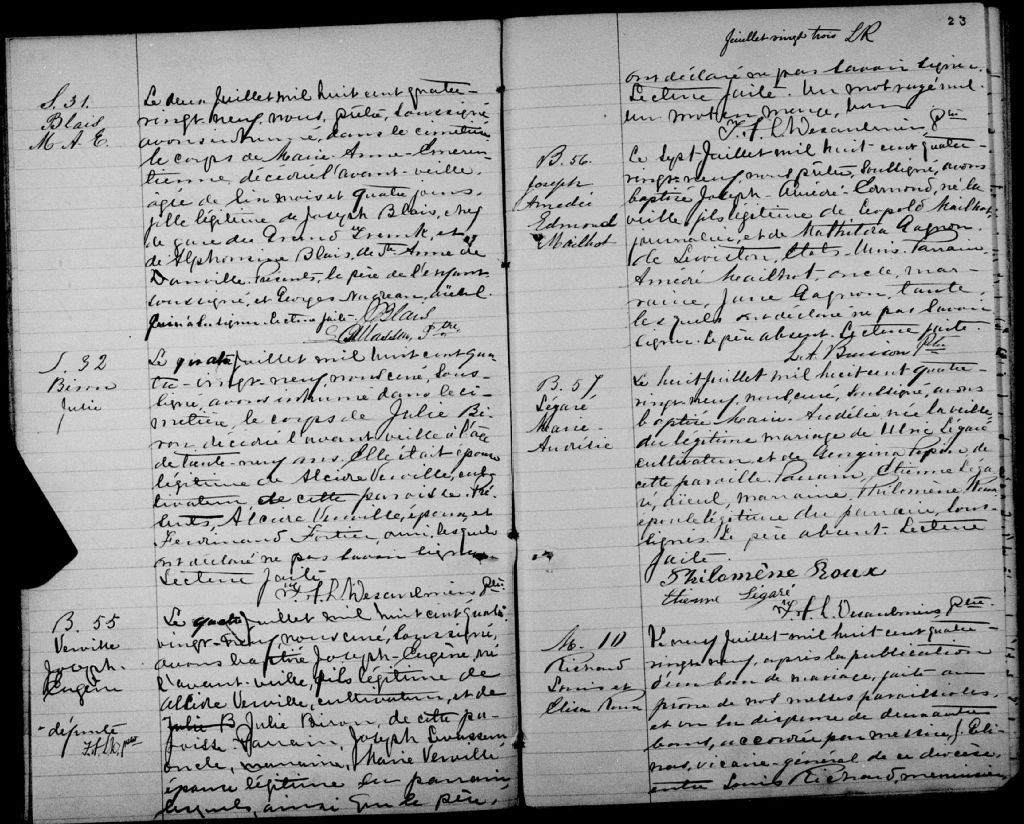 S. 31.
Blais
M. A. E.
Le deux Juillet mil huit cent quatre-
vingt-neuf, nous, prêtre, soussigné
avons inhumé, dans le cimetière
le corps de Marie-Anne-Emeren-
tienne, décédée l'avant-veille,
âgée de un mois et quatre jours,
fille légitime de Joseph Blais, chef
de gare du Grand Trunk, et
de Alphonsine Blais, de Ste Anne de
Danville. Présents, le père de l'enfant
soussigné, et Georges Nadeau, aïeul
Lecture faite. J. Blais
Ptre
S. 32
Biron
Julie
Le quatre Juillet mil huit cent qua-
tre-vingt-neuf, nous, curé, sous-
signé, avons inhumé dans le ci-
metière, le corps de Julie Bi-
ron, décédée l'avant veille à l'âge
de trente-neuf ans. Elle était épouse
légitime de Alcide Verville, cul-
tivateur de cette paroisse. Pré-
sents, Alcide Verville, époux, et
Ferdinand Fortier, ami, lesquels
ont déclaré ne pas savoir signer.
Lecture faite
F. A. L. Desaulniers Ptre
B. 55
Verville
Joseph-
Eugène
- défunte
Le quatre Juillet mil huit cent quatre-
vingt-neuf, nous, curé, soussigné,
avons baptisé Joseph-Eugène, né
l'avant-veille, fils légitime de
Alcide Verville, cultivateur, et de
Julie B Julie Biron, de cette pa-
roisse. Parrain, Joseph
oncle, marraine, Marie Verville
épouse légitime du parrain
lesquels, ainsi que le père,
23
Juillet vingt trois LR
ont déclaré ne pas savoir signer.
Lecture faite. Un mot rayé nul.
un mot en marge, bon
F. A. L. Desaulniers, Ptre
B. 56.
Joseph
Amédé
Edmond
Mailhot
Le sept Juillet mil huit-cent quatre-
vingt-neuf, nous, prêtre, soussigné, avons
baptisé Joseph-Amédé-Edmond, né la
veille fils légitime de Léopold Mailhot
journalier, et de Mathilda Gagnon,
de Lewiston, Etats-Unis. Parrain,
Amédé Mailhot, oncle, mar-
raine, Jane Gagnon, tante,
lesquels ont déclaré ne pas savoir
signer. Le père absent. Lecture faite.
L. A. Buisson Ptre
B. 57
Légaré
Marie-
Le huit Juillet mil huit cent quatre-
vingt-neuf, nous, curé, soussigné, avons
baptisé Marie née la veille
du légitime mariage de Ulric Légaré
cultivateur, et de Georgina Pépin de
cette paroisse. Parrain, Etienne Léga-
ré, aïeul, marraine, Philomène Roux
épouse légitime du parrain, sous-
signés. Le père absent. Lecture
faite.
Philomène Roux
Etienne Légaré
F. A. L. Desaulniers Ptre
M. 10
Richard
Louis et
Elisa Roux
Le onze Juillet mil huit cent quatre-
vingt neuf, après la publication
d'un ban de mariage, faite au
prône de nos messes paroissiales,
et vu la dispense de deux autres
bans, accordée par messire, J.
vicaire-général de ce diocèse,
entre Louis Richard, menuisier